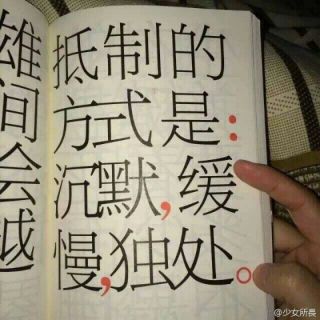 抵制的
方式是:
沉默,缓
慢,独处。
雄
间
会
越
@少女所長